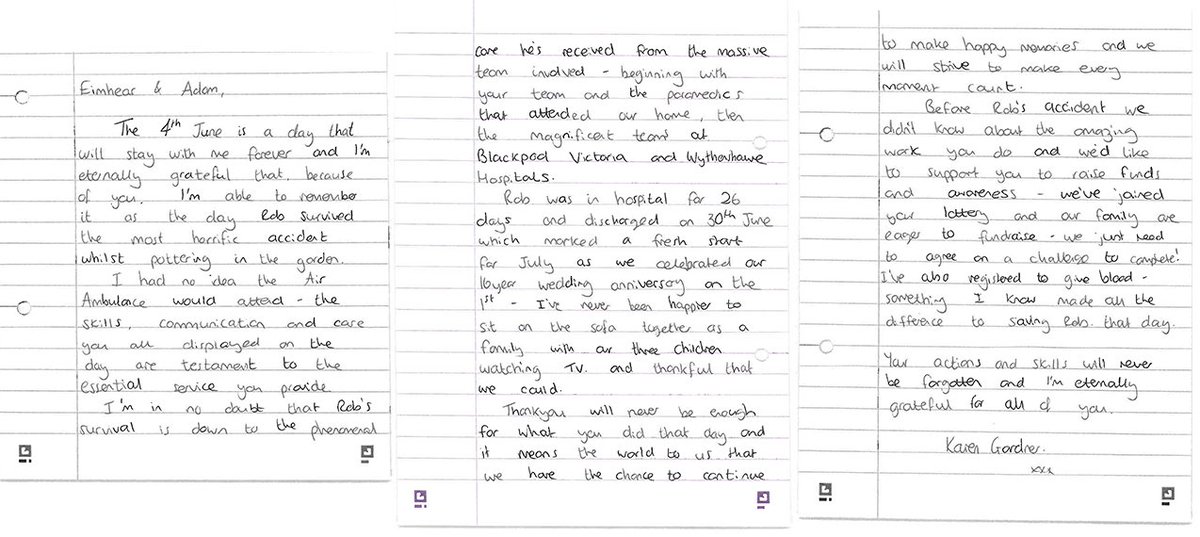 Eimhear & Adam,
The 4th June is a day that
will stay with me forever and I'm
eternally grateful that, because
of you, I'm able to remember
it as the day Rob survived
the most horrific accident
whilst pottering in the garden.
I had no idea the Air
Ambulance would attend - the
skills, communication and care
you all displayed on the
day are testament to the
essential service you provide
I'm in no doubt that Rob's
survival is down to the phenomenal
care he's received from the massive
team involved - beginning with
your team and the paramedics
that attended our home, then
the magnificent teams at
Blackpool Victoria and Wythenshawe
Hospitals.
Rob was in hospital for 26
days and discharged on 30th June
which marked a fresh start
for July as we celebrated our
16 year wedding anniversary on the
1st - I've never been happier to
sit on the sofa together as a
family with our three children
watching TV. and thankful that
we could.
Thankyou will never be enough
for what you did that day and
it means the world to us that
we have the chance to continue
to make happy memories and we
will strive to make every
moment count.
Before Rob's accident we
didn't know about the amazing
work you do and we'd like
to support you to raise funds
and awareness - we've joined
your lottery and our family are
eager to fundraise - we just need
to agree on a challenge to complete!
I've also registered to give blood -
something I know made all the
difference to saving Rob that day.
Your actions and skills will never
be forgotten and I'm eternally
grateful for all of you.
Karen Gardner.
xxx